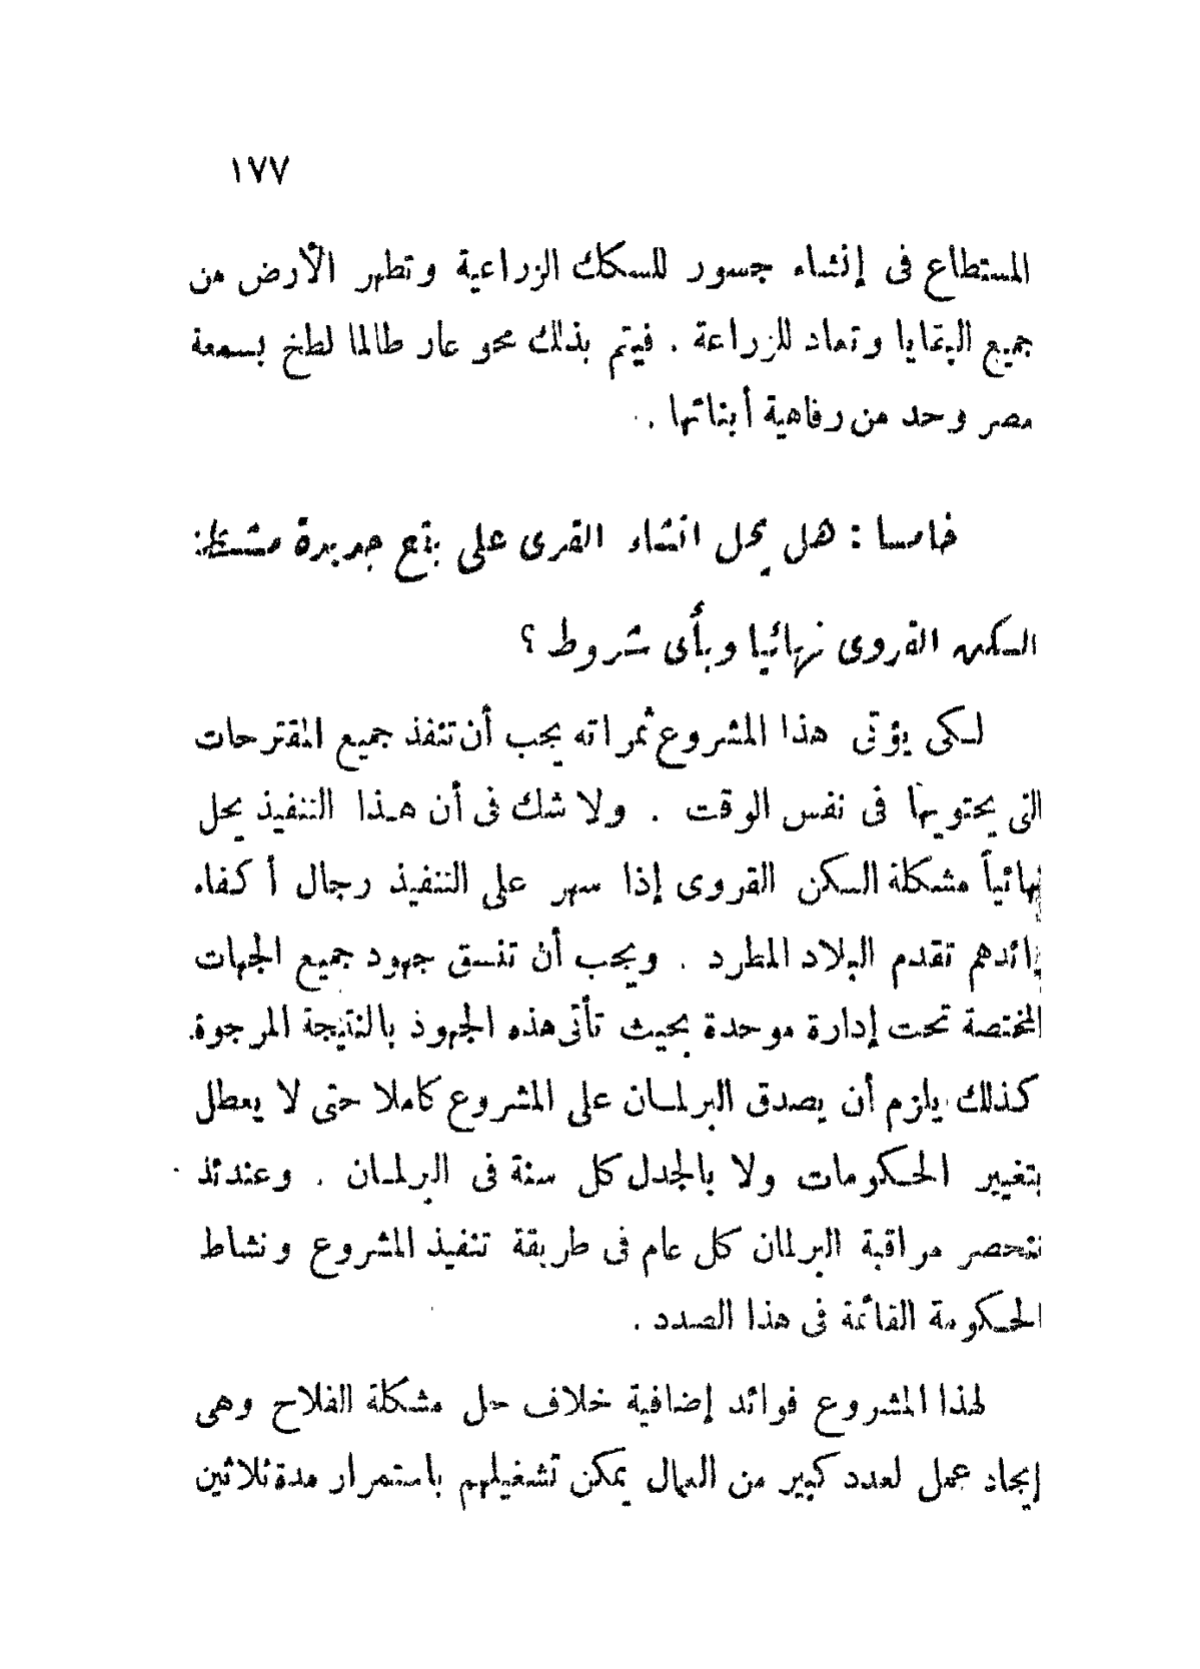 ١٧٧
المستطاع فى إنشاء جسور للسكك الزراعية وتطهر الأرض من
جميع البقايا وتعاد للزراعة . فيتم بذلك محو عار طالما لطخ بسمعة
مصر وحد من رفاهية أبنائها .
خامسا : هل يحل انشاء القرى على بقع جديدة مشكلة
السكن القروى نهائيا وبأى شروط ؟
لكى يؤتى هذا المشروع ثمراته يجب أن تنفذ جميع المقترحات
التى يحتويها فى نفس الوقت . ولا شك فى أن هذا التنفيذ يحل
نهائياً مشكلة السكن القروى إذا سهر على التنفيذ رجال أكفاء
رائدهم تقدم البلاد المطرد . ويجب أن تنسق جهود جميع الجهات
المختصة تحت إدارة موحدة بحيث تأتى هذه الجهود بالنتيجة المرجوة.
كذلك يلزم أن يصدق البرلمان على المشروع كاملا حتى لا يعطل
بتغيير الحكومات ولا بالجدل كل سنة فى البرلمان . وعندئذ
تنحصر مراقبة البرلمان كل عام فى طريقة تنفيذ المشروع ونشاط
الحكومة القائمة فى هذا الصدد .
لهذا المشروع فوائد إضافية خلاف حل مشكلة الفلاح وهى
إيجاد عمل لعدد كبير من العمال يمكن تشغيلهم باستمرار مدة ثلاثين